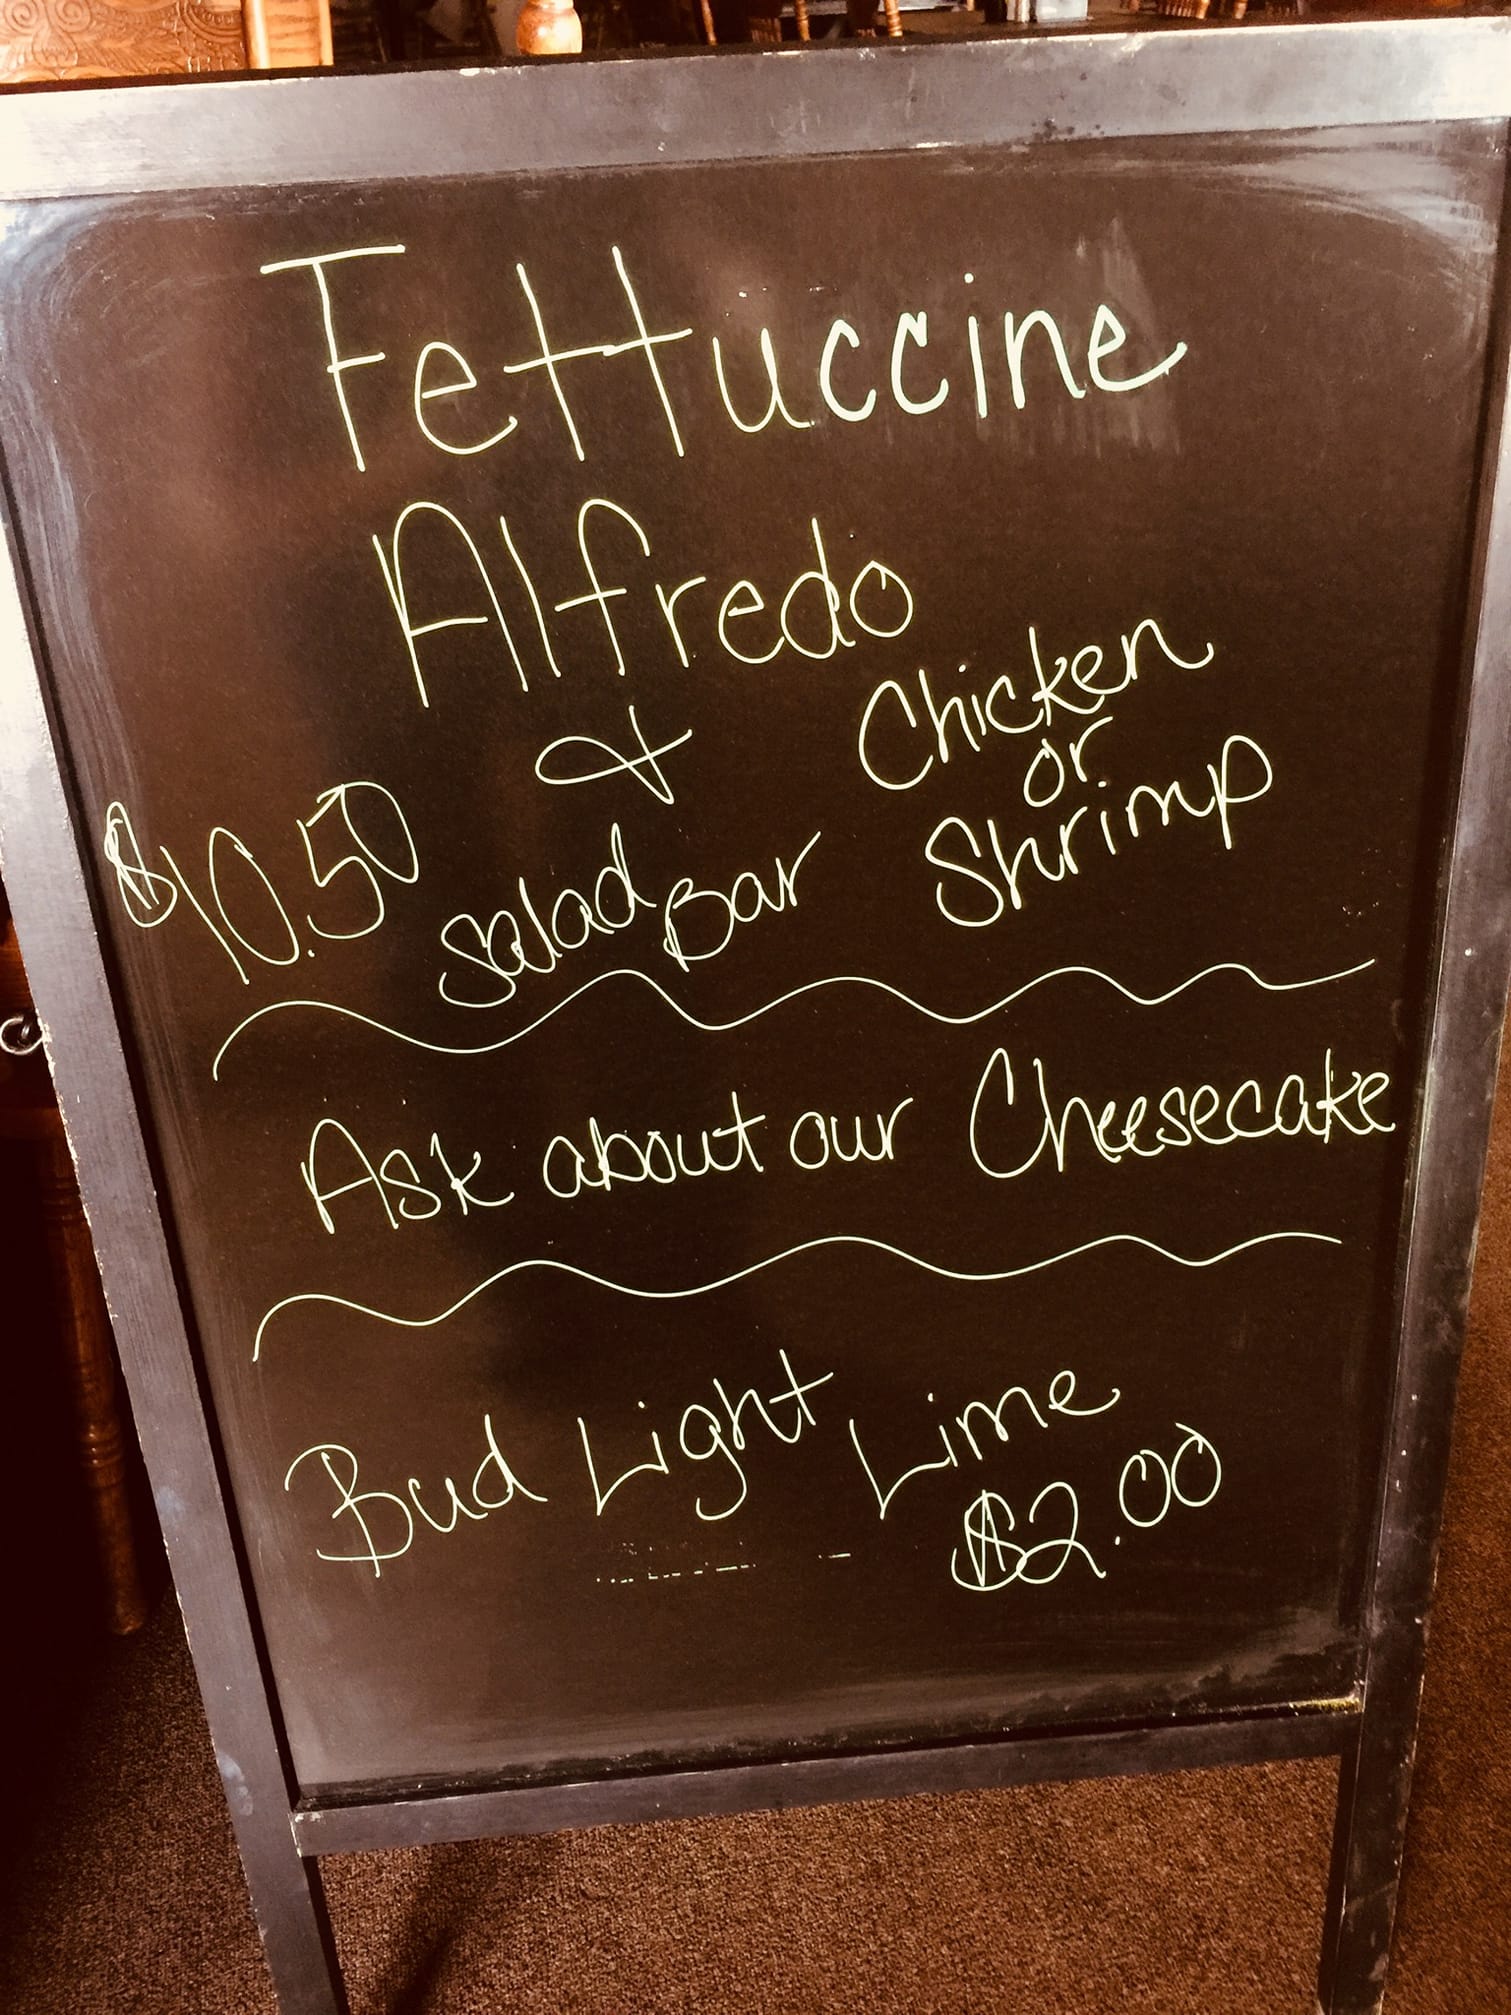 Fettuccine
Alfredo
&
Chicken
or
Shrimp
$10.50
Salad Bar
Ask about our Cheesecake
Bud Light Lime
$2.00